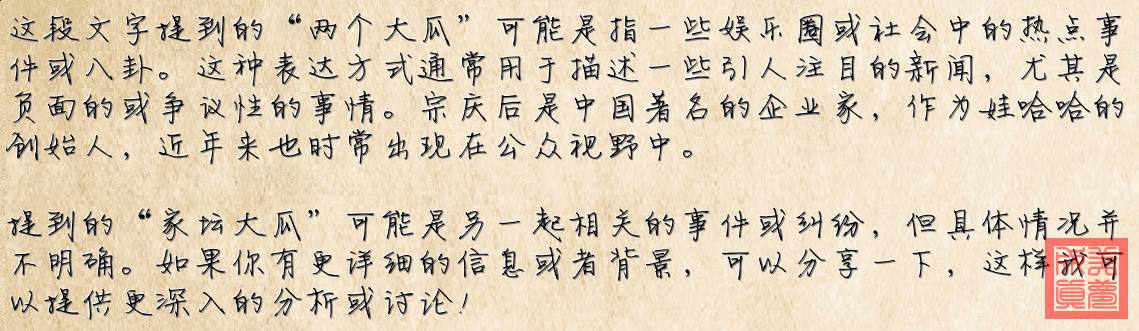 这段文字提到的“两个大瓜”可能是指一些娱乐圈或社会中的热点事
件或八卦。这种表达方式通常用于描述一些引人注目的新闻，尤其是
负面的或争议性的事情。宗庆后是中国著名的企业家，作为娃哈哈的
创始人，近年来也时常出现在公众视野中。
提到的“家坛大瓜”可能是另一起相关的事件或纠纷，但具体情况并
不明确。如果你有更详细的信息或者背景，可以分享一下，这样我可
以提供更深入的分析或讨论！